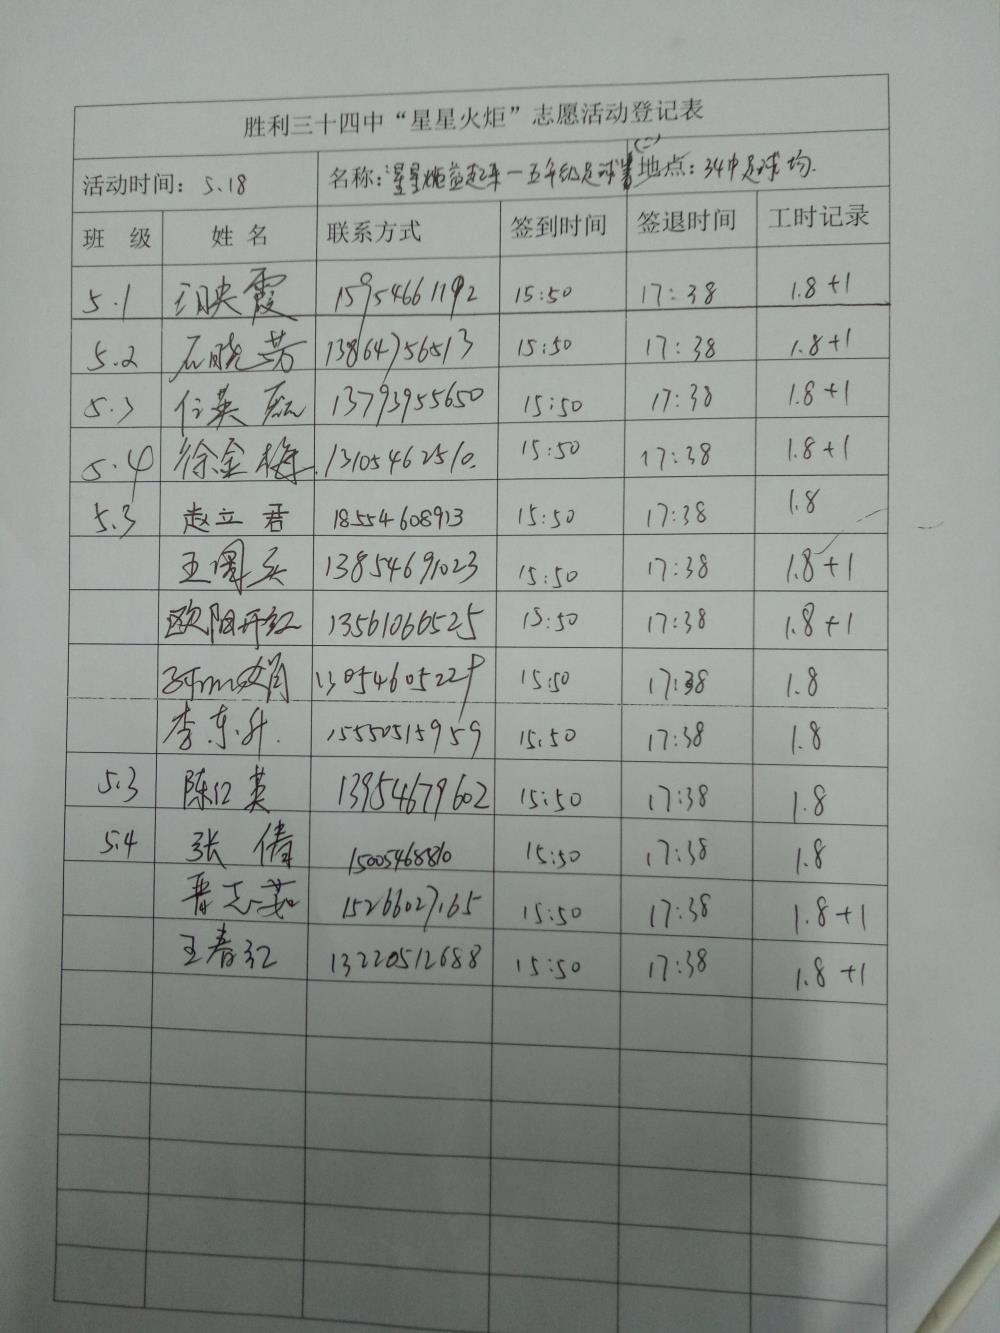 胜利三十四中“星星火炬”志愿活动登记表
活动时间：5.18 名称：星星火炬益起来一五年级足球赛(二) 地点：34中足球场.
班 级 姓 名 联系方式 签到时间 签退时间 工时记录
5.1 霞 15954661192 15:50 17:38 1.8+1
5.2 石晓芳 13864756513 15:50 17:38 1.8+1
5.3 任英 13793955650 15:50 17:38 1.8+1
5.4 徐金梅 13105462510. 15:50 17:38 1.8+1
5.3 赵立君 18554608913 15:50 17:38 1.8
王 13854691023 15:50 17:38 1.8+1
欧阳开红 13561066525 15:50 17:38 1.8+1
娟 13054605229 15:50 17:38 1.8
李东升. 15550515959 15:50 17:38 1.8
5.3 陈红英 13954679602 15:50 17:38 1.8
5.4 张倩 15005468810 15:50 17:38 1.8
晋志茹 15266027165 15:50 17:38 1.8+1
王春红 13220512688 15:50 17:38 1.8+1